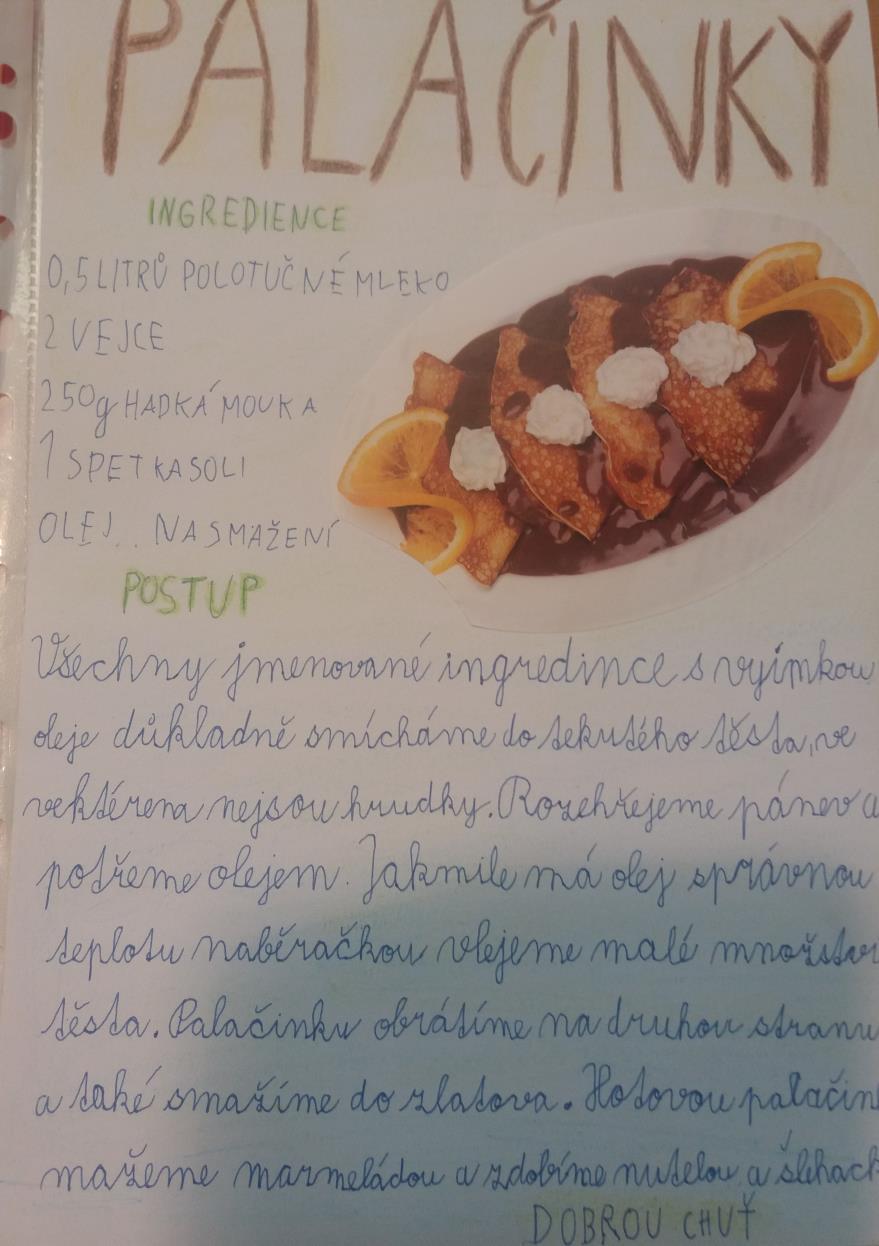 PALAČINKY
INGREDIENCE
0,5 LITRŮ POLOTUČNÉ MLEKO
2 VEJCE
250g HADKÁ MOUKA
1 SPETKA SOLI
OLEJ.. NA SMAŽENÍ
POSTUP
Všechny jmenované ingredince s vyímkou
oleje důkladně smícháme do tekutého těsta, ve
vektérena nejsou hrudky. Rozehřejeme pánev a
potřeme olejem. Jakmile má olej správnou
teplotu naběračkou vlejeme malé množstv
těsta. Palačinku obrátíme na druhou stranu
a také smažíme do zlatova. Hotovou palačin
mažeme marmeládou a zdobíme nutelou a šlehačk
DOBROU CHUŤ